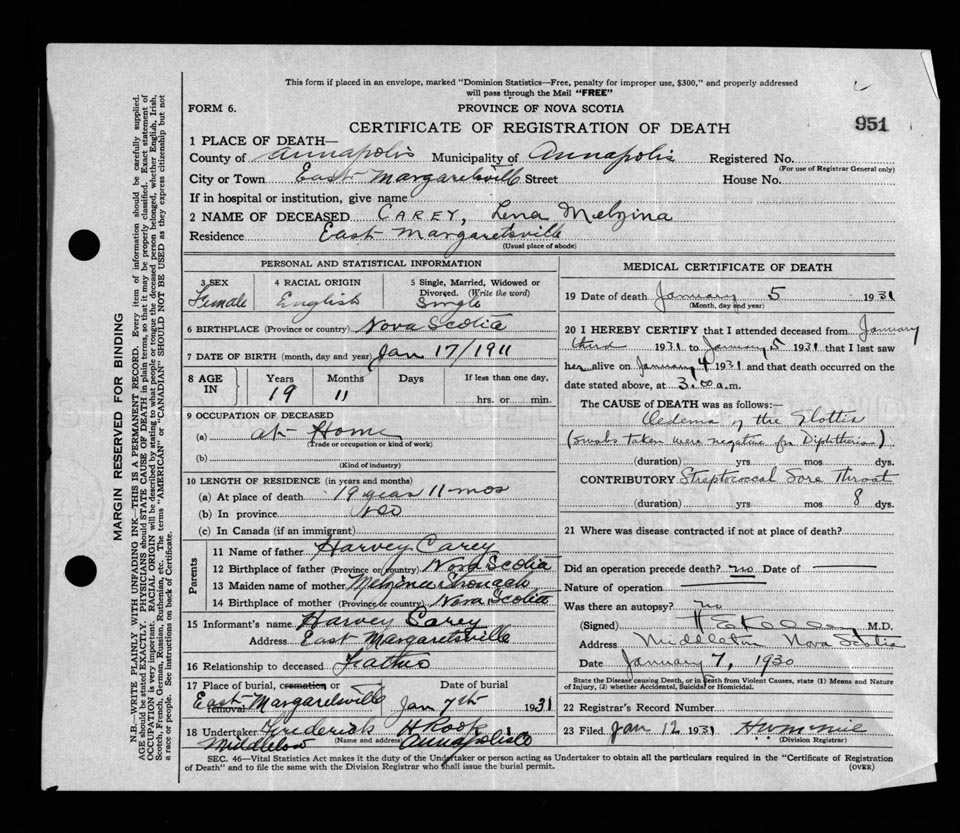 This form if placed in an envelope, marked "Dominion Statistics—Free, penalty for improper use, $300," and properly addressed
will pass through the Mail "FREE"
FORM 6.
PROVINCE OF NOVA SCOTIA
CERTIFICATE OF REGISTRATION OF DEATH
951
1 PLACE OF DEATH—
County of Annapolis Municipality of Annapolis Registered No.
(For use of Registrar General only)
City or Town East Margaretsville Street House No.
If in hospital or institution, give name
2 NAME OF DECEASED CAREY, Lena Melzina
Residence East Margaretsville
(Usual place of abode)
PERSONAL AND STATISTICAL INFORMATION
3 SEX Female
4 RACIAL ORIGIN English
5 Single, Married, Widowed or Divorced. (Write the word) Single
6 BIRTHPLACE (Province or country) Nova Scotia
7 DATE OF BIRTH (month, day and year) Jan 17/1911
8 AGE IN Years 19 Months 11 Days If less than one day, hrs. or min.
9 OCCUPATION OF DECEASED
(a) at Home
(Trade or occupation or kind of work)
(b)
(Kind of industry)
10 LENGTH OF RESIDENCE (in years and months)
(a) At place of death 19 years 11 mos
(b) In province
(c) In Canada (if an immigrant)
Parents
11 Name of father Harvey Carey
12 Birthplace of father (Province or country) Nova Scotia
13 Maiden name of mother Melzina
14 Birthplace of mother (Province or country) Nova Scotia
15 Informant's name Harvey Carey
Address East Margaretsville
16 Relationship to deceased Father
17 Place of burial, cremation or removal East Margaretsville
Date of burial Jan 7th 1931
18 Undertaker Frederick H Rook
(Name and address)
Middleton Annapolis Co
MEDICAL CERTIFICATE OF DEATH
19 Date of death January 5 1931
(Month, day and year)
20 I HEREBY CERTIFY that I attended deceased from January
third 1931 to January 5 1931 that I last saw
her alive on January 4 1931 and that death occurred on the
date stated above, at 3.00 a.m.
The CAUSE of DEATH was as follows:—
Oedema of the Glottis
(swabs taken were negative for Diphtheria)
(duration) yrs mos dys.
CONTRIBUTORY Streptococcal Sore Throat
(duration) yrs. mos 8 dys.
21 Where was disease contracted if not at place of death?
Did an operation precede death? no Date of
Nature of operation
Was there an autopsy? no
(Signed) M.D.
Address Middleton Nova Scotia
Date January 7, 1930
State the Disease causing Death, or in Death from Violent Causes, state (1) Means and Nature
of Injury, (2) whether Accidental, Suicidal or Homicidal.
22 Registrar's Record Number
23 Filed Jan 12 1931
(Division Registrar)
SEC. 46—Vital Statistics Act makes it the duty of the Undertaker or person acting as Undertaker to obtain all the particulars required in the "Certificate of Registration
of Death" and to file the same with the Division Registrar who shall issue the burial permit.
(OVER)
MARGIN RESERVED FOR BINDING
N.B.—WRITE PLAINLY WITH UNFADING INK—THIS IS A PERMANENT RECORD. Every item of information should be carefully supplied.
AGE should be stated EXACTLY. PHYSICIANS should STATE CAUSE OF DEATH in plain terms, so that it may be properly classified. Exact statement of
OCCUPATION is very important. RACIAL ORIGIN will be described by stating to what people or tongue the deceased person belonged, whether English, Irish,
Scotch, French, German, Russian, Ruthenian, etc. The terms "AMERICAN" or "CANADIAN" SHOULD NOT BE USED as they express citizenship but not
a race or people. See instructions on back of Certificate.